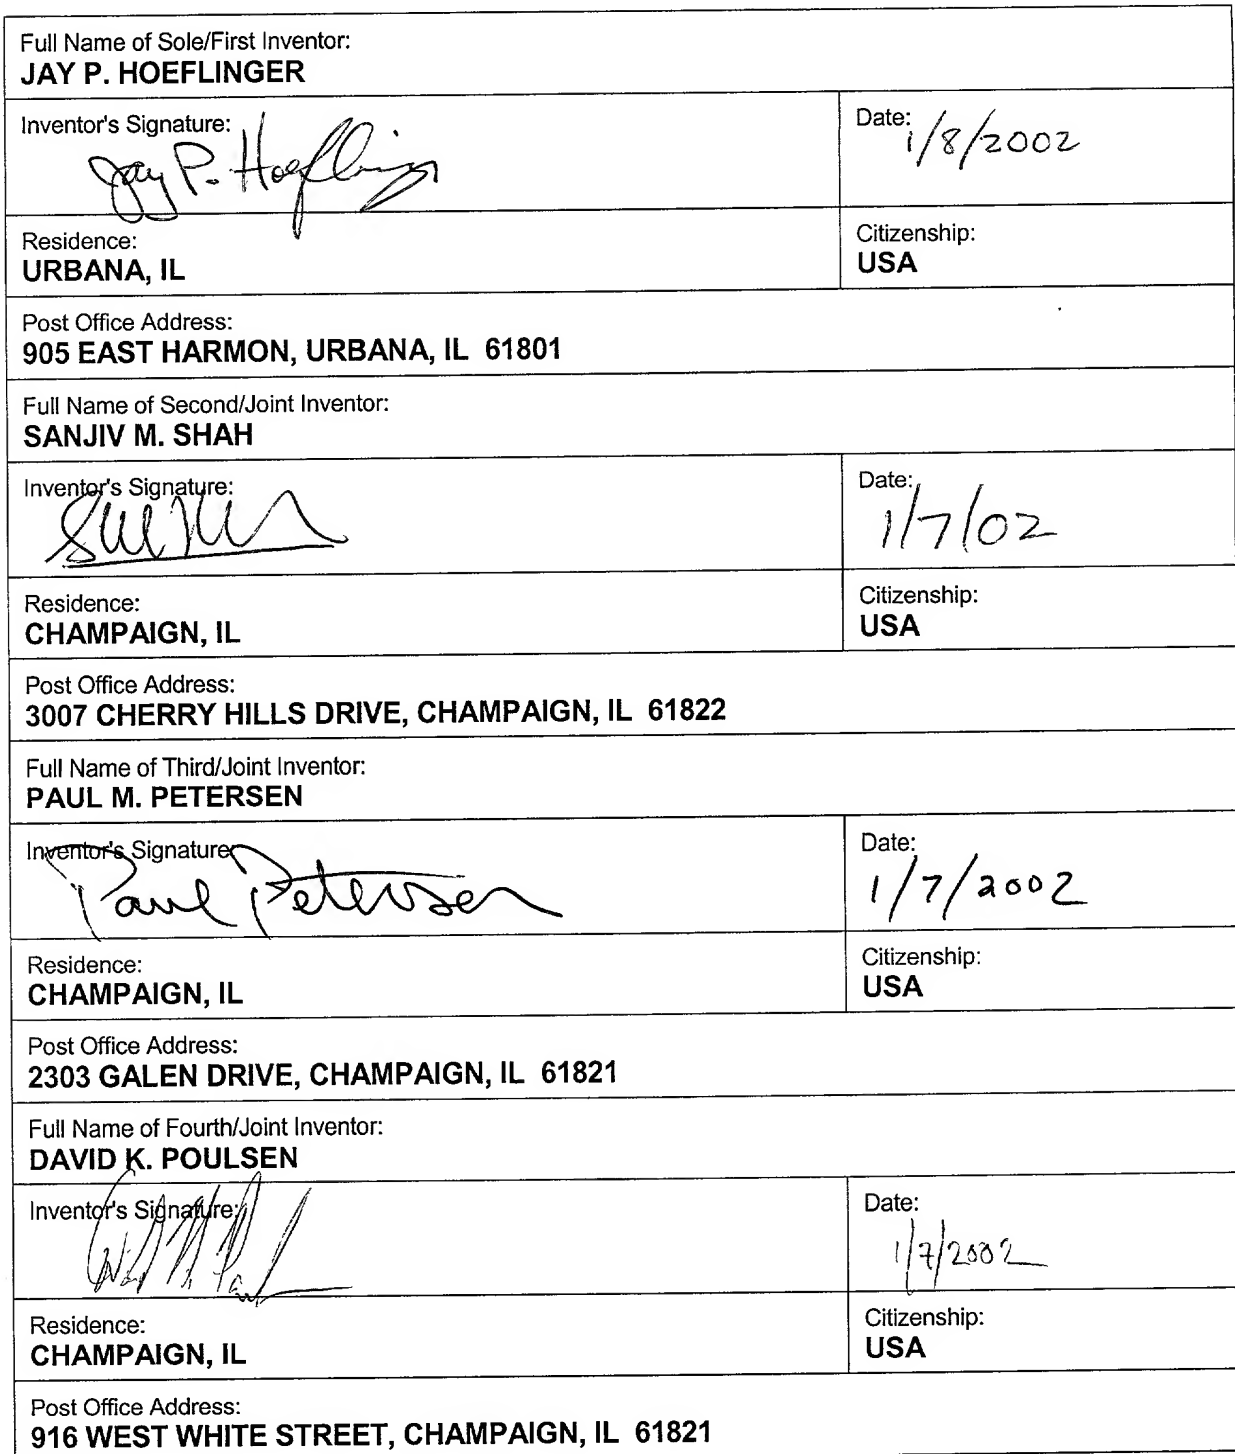 Full Name of Sole/First Inventor:
JAY P. HOEFLINGER
Inventor's Signature:
Jay P. Hoeflinger
Date:
1/8/2002
Residence:
URBANA, IL
Citizenship:
USA
Post Office Address:
905 EAST HARMON, URBANA, IL 61801
Full Name of Second/Joint Inventor:
SANJIV M. SHAH
Inventor's Signature:
Date:
1/7/02
Residence:
CHAMPAIGN, IL
Citizenship:
USA
Post Office Address:
3007 CHERRY HILLS DRIVE, CHAMPAIGN, IL 61822
Full Name of Third/Joint Inventor:
PAUL M. PETERSEN
Inventor's Signature:
Paul Petersen
Date:
1/7/2002
Residence:
CHAMPAIGN, IL
Citizenship:
USA
Post Office Address:
2303 GALEN DRIVE, CHAMPAIGN, IL 61821
Full Name of Fourth/Joint Inventor:
DAVID K. POULSEN
Inventor's Signature:
Date:
1/7/2002
Residence:
CHAMPAIGN, IL
Citizenship:
USA
Post Office Address:
916 WEST WHITE STREET, CHAMPAIGN, IL 61821